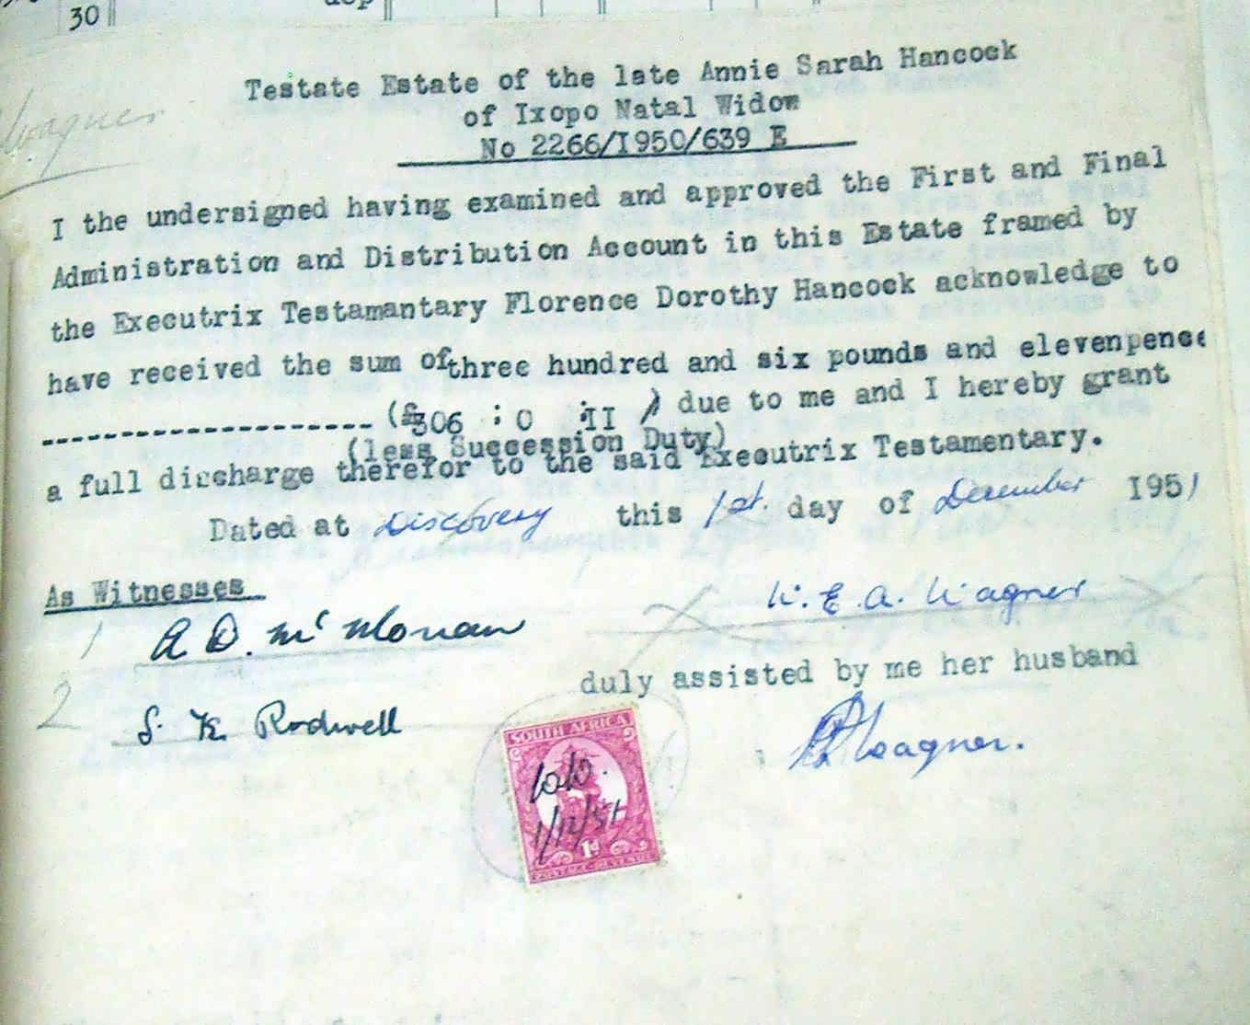 30
Wagner
Testate Estate of the late Annie Sarah Hancock
of Ixopo Natal Widow
No 2266/I950/639 E
I the undersigned having examined and approved the First and Final
Administration and Distribution Account in this Estate framed by
the Executrix Testamantary Florence Dorothy Hancock acknowledge to
have received the sum of three hundred and six pounds and elevenpence
-------------------- (£306 : 0 :II ) due to me and I hereby grant
(less Succession Duty)
a full discharge therefor to the said Executrix Testamentary.
Dated at Discovery this 1st. day of December 1951
As Witnesses
1 A D. McMonan
W. E. A. Wagner
duly assisted by me her husband
2 S. K. Rodwell
Wagner.
SOUTH AFRICA
1/12/51
1d
POSTAGE-REVENUE